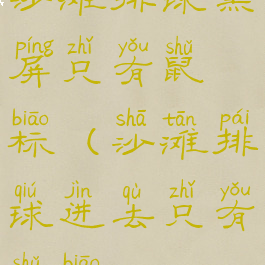 沙滩排球黑
píng zhǐ yǒu shǔ
屏只有鼠
biāo shā tān pái
标（沙滩排
qiú jìn qù zhǐ yǒu
球进去只有
shǔ biāo